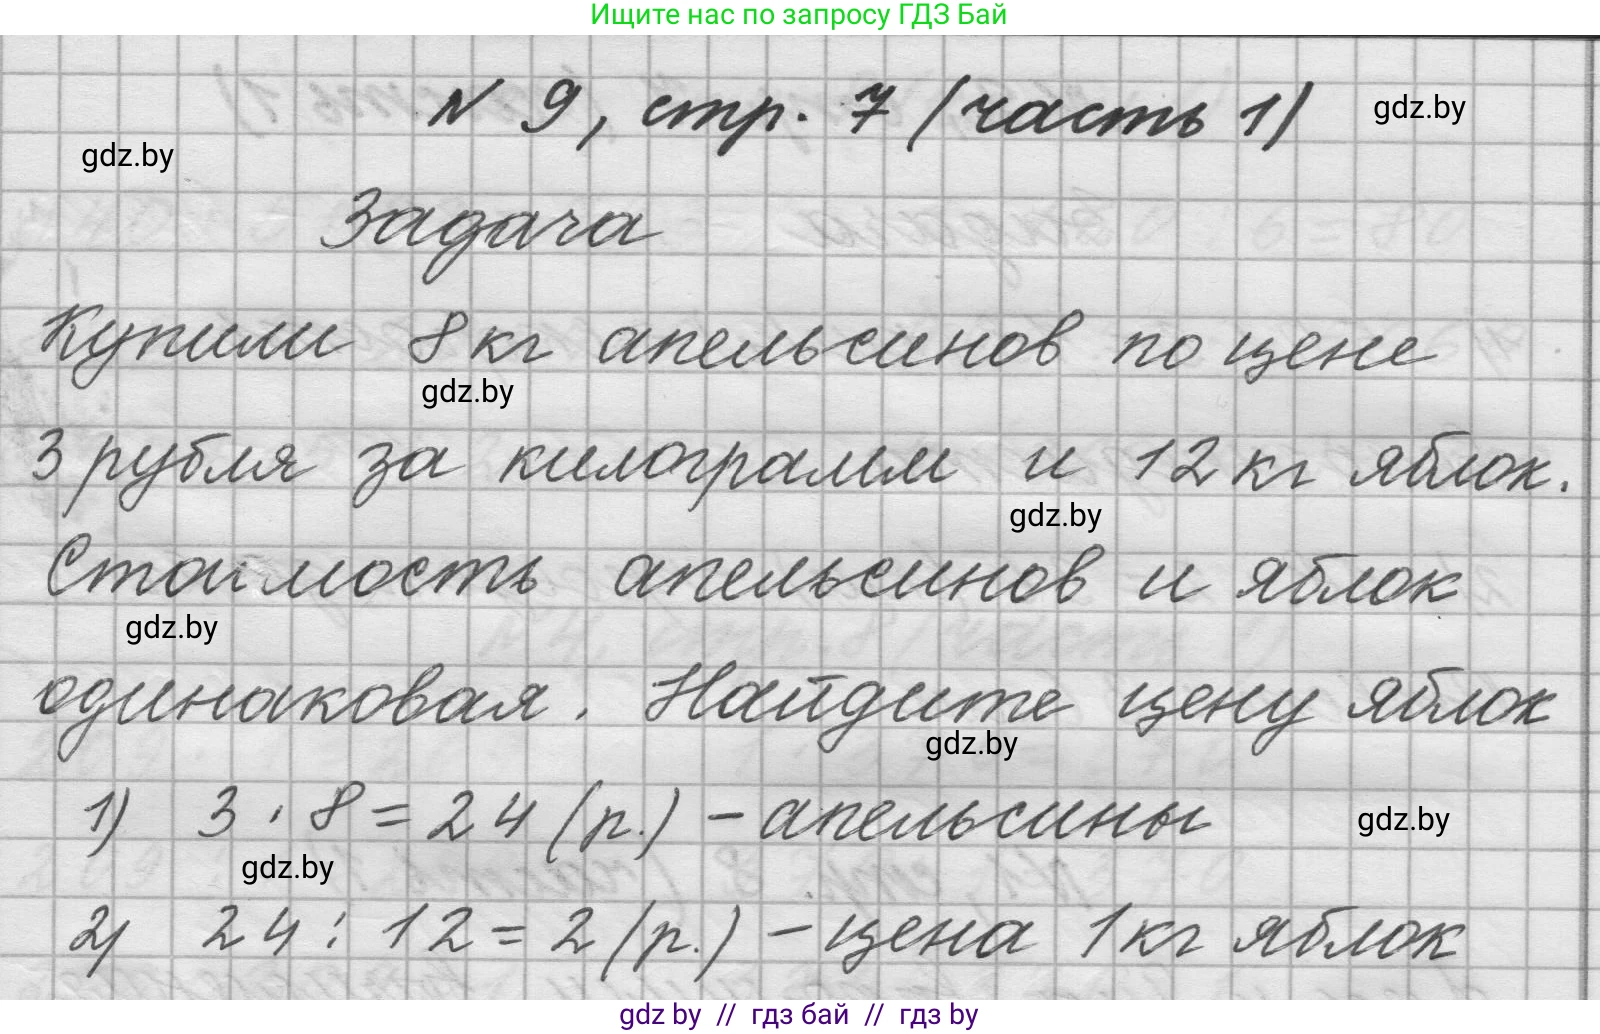 Ищите нас по запросу ГДЗ Бай
N 9, стр. 7 (часть 1)
gdz.by
gdz.by
Задача
Купили 8 кг апельсинов по цене
gdz.by
3 рубля за килограмм и 12 кг яблок.
gdz.by
Стоимость апельсинов и яблок
gdz.by
одинаковая. Найдите цену яблок
gdz.by
1) 3 · 8 = 24 (р.) – апельсины
gdz.by
gdz.by
2) 24 : 12 = 2 (р.) – цена 1 кг яблок
gdz by // гдз бай // гдз by